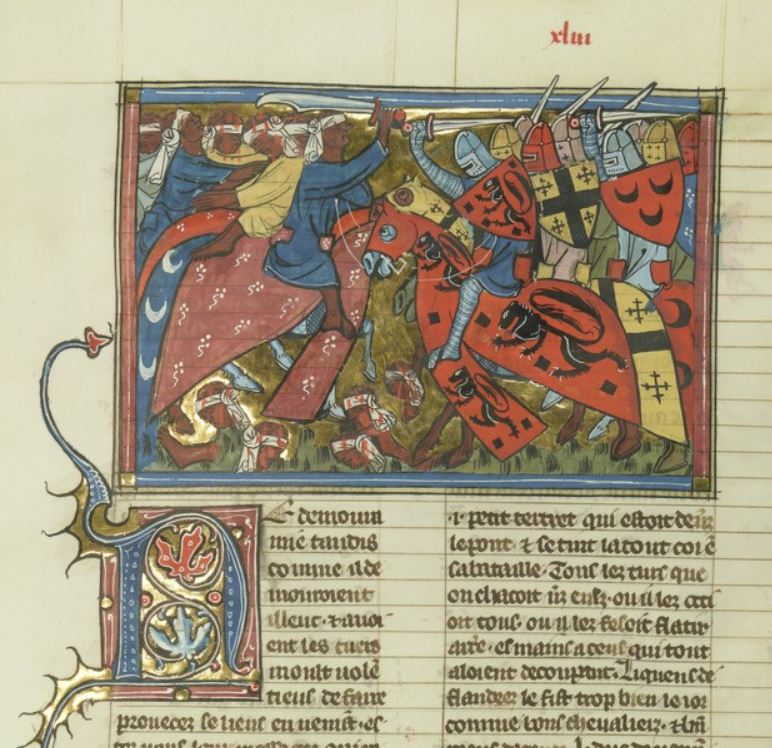 xliii
demoura
mie tandis
comme il de
mouroient
illeuc · ⁊ auoi
ent les cuers
moult uolē
tieus de faire
proueces se uient en uenist · es
·i· petit tertret qui estoit deuãt
le pont · ⁊ se tint la tout coi ⁊
sa bataille · Tous les turs que
on chacoit
oit tous · ou il les fesoit flatir
es mains a ceus qui tout
aloient decoupant · Li quens de
flandres le fist trop bien le ior
comme bons cheualiers · ⁊